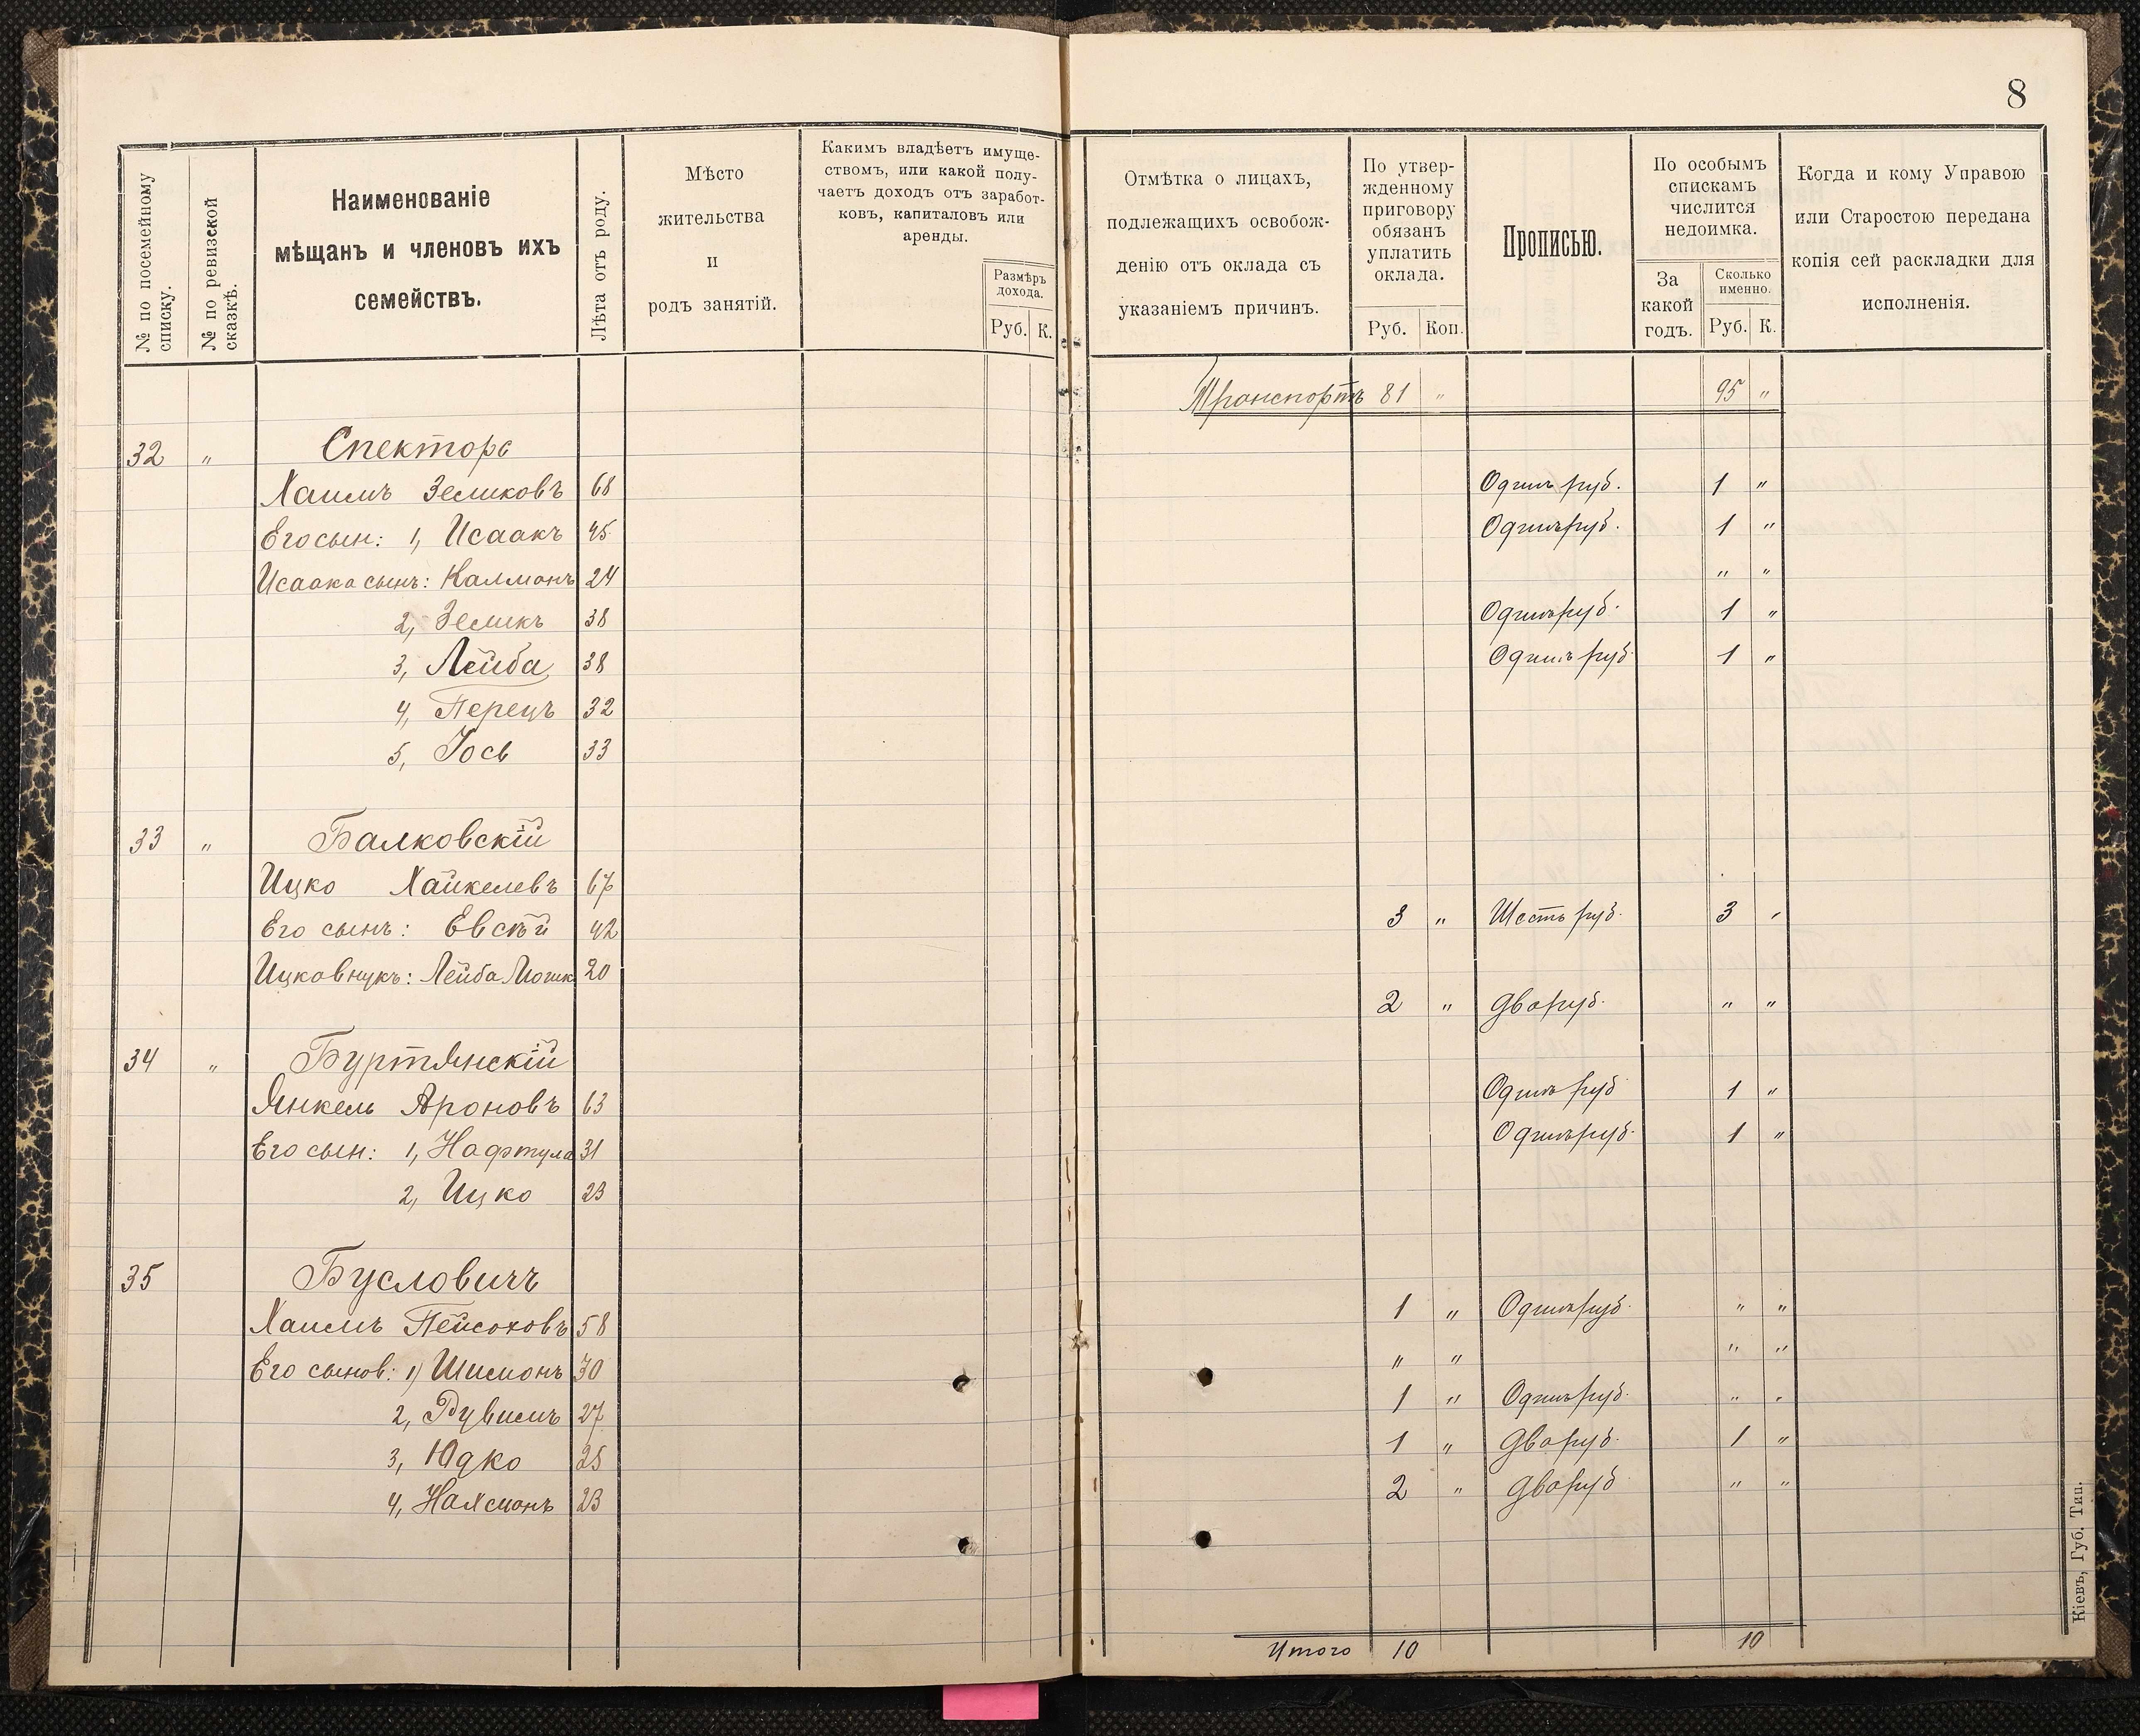 8
№ по посемейному списку.
№ по ревизской сказкѣ.
Наименованіе
мѣщанъ и членовъ ихъ
семействъ.
Лѣта отъ роду.
Мѣсто
жительства
и
родъ занятій.
Какимъ владѣетъ имуще-
ствомъ, или какой полу-
чаетъ доходъ отъ заработ-
ковъ, капиталовъ или
аренды.
Размѣръ
дохода.
Руб. К.
Отмѣтка о лицахъ,
подлежащихъ освобож-
денію отъ оклада съ
указаніемъ причинъ.
По утвер-
жденному
приговору
обязанъ
уплатить
оклада.
Руб. Коп.
Прописью.
По особымъ
спискамъ
числится
недоимка.
За
какой
годъ.
Сколько
именно.
Руб. К.
Когда и кому Управою
или Старостою передана
копія сей раскладки для
исполненія.
Транспортъ 81 " 95 "
32 " Спектора
Хаимъ Зеликовъ 68 Одинъ руб. 1 "
Его сын: 1, Исаакъ 45 Одинъ руб. 1 "
Исаака сынъ: Калманъ 24 " "
2, Зеликъ 38 Одинъ руб. 1 "
3, Лейба 38 Одинъ руб. 1 "
4, Перецъ 32
5, Іось 33
33 " Балковскій
Ицко Хайкелевъ 67
Его сынъ: Евсѣй 42 3 " Шесть руб. 3 "
Ицка внукъ: Лейба Мошк 20
2 " Два руб. " "
34 " Буртянскій
Янкель Ароновъ 63 Одинъ руб 1 "
Его сын: 1, Нафтула 31 Одинъ руб. 1 "
2, Ицко 23
35 Бусловичъ
Хаимъ Пейсаховъ 58 1 " Одинъ руб. " "
Его сынов: 1) Шимонъ 30 " " " "
2, Рувимъ 27 1 " Одинъ руб. " "
3, Юдко 25 1 " Два руб. 1 "
4, Нахманъ 23 2 " Два руб " "
Итого 10 10
Кіевъ, Губ. Тип.